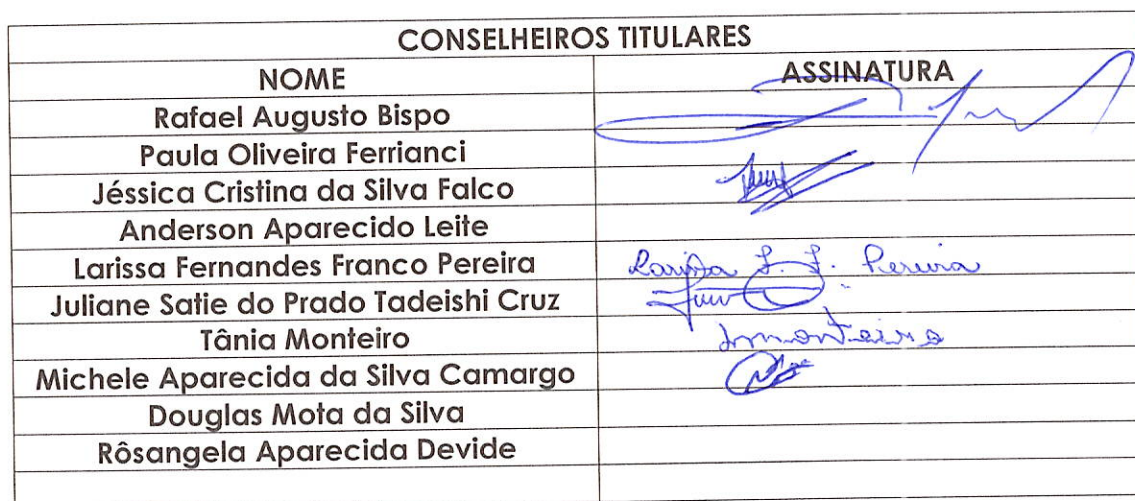 CONSELHEIROS TITULARES
NOME ASSINATURA
Rafael Augusto Bispo
Paula Oliveira Ferrianci
Jéssica Cristina da Silva Falco
Anderson Aparecido Leite
Larissa Fernandes Franco Pereira Larissa F. F. Pereira
Juliane Satie do Prado Tadeishi Cruz
Tânia Monteiro
Michele Aparecida da Silva Camargo
Douglas Mota da Silva
Rôsangela Aparecida Devide